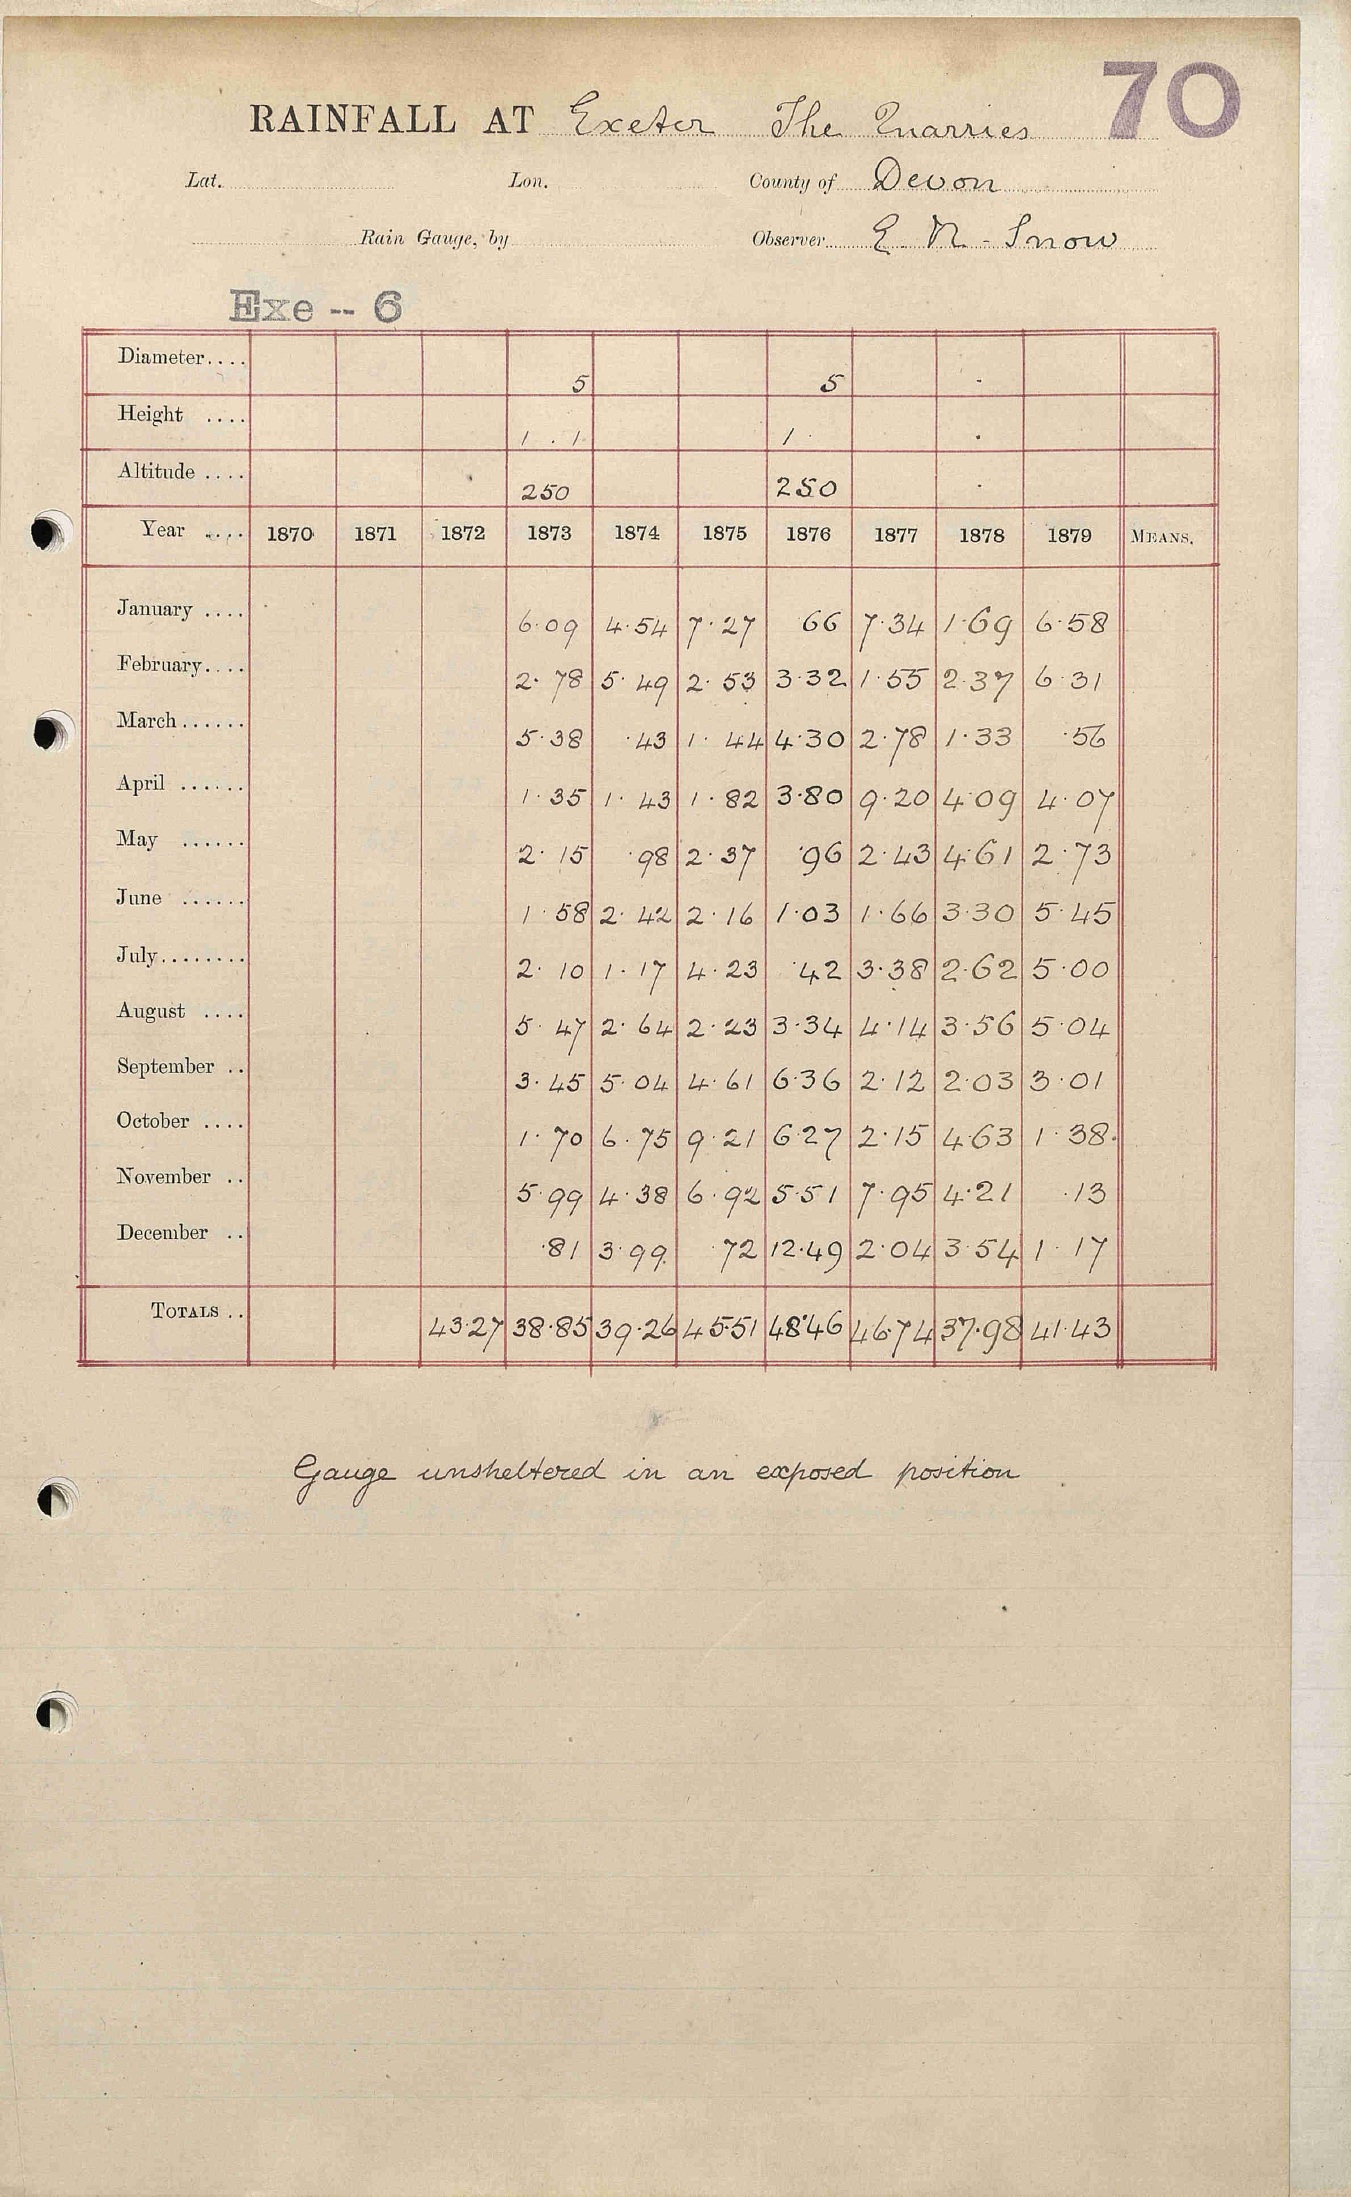 70
RAINFALL AT Exeter The Quarries
Lat. Lon. County of Devon
Rain Gauge, by Observer E. N. Snow
Exe -- 6
Diameter.... 5 5
Height .... 1 . 1 1
Altitude .... 250 250
Year .... 1870 1871 1872 1873 1874 1875 1876 1877 1878 1879 MEANS.
January .... 6.09 4.54 7.27 66 7.34 1.69 6.58
February.... 2.78 5.49 2.53 3.32 1.55 2.37 6.31
March...... 5.38 .43 1.44 4.30 2.78 1.33 .56
April ...... 1.35 1.43 1.82 3.80 9.20 4.09 4.07
May ...... 2.15 .98 2.37 .96 2.43 4.61 2.73
June ...... 1.58 2.42 2.16 1.03 1.66 3.30 5.45
July........ 2.10 1.17 4.23 .42 3.38 2.62 5.00
August .... 5.47 2.64 2.23 3.34 4.14 3.56 5.04
September .. 3.45 5.04 4.61 6.36 2.12 2.03 3.01
October .... 1.70 6.75 9.21 6.27 2.15 4.63 1.38
November .. 5.99 4.38 6.92 5.51 7.95 4.21 .13
December .. .81 3.99 .72 12.49 2.04 3.54 1.17
TOTALS .. 43.27 38.85 39.26 45.51 48.46 46.74 37.98 41.43
Gauge unsheltered in an exposed position